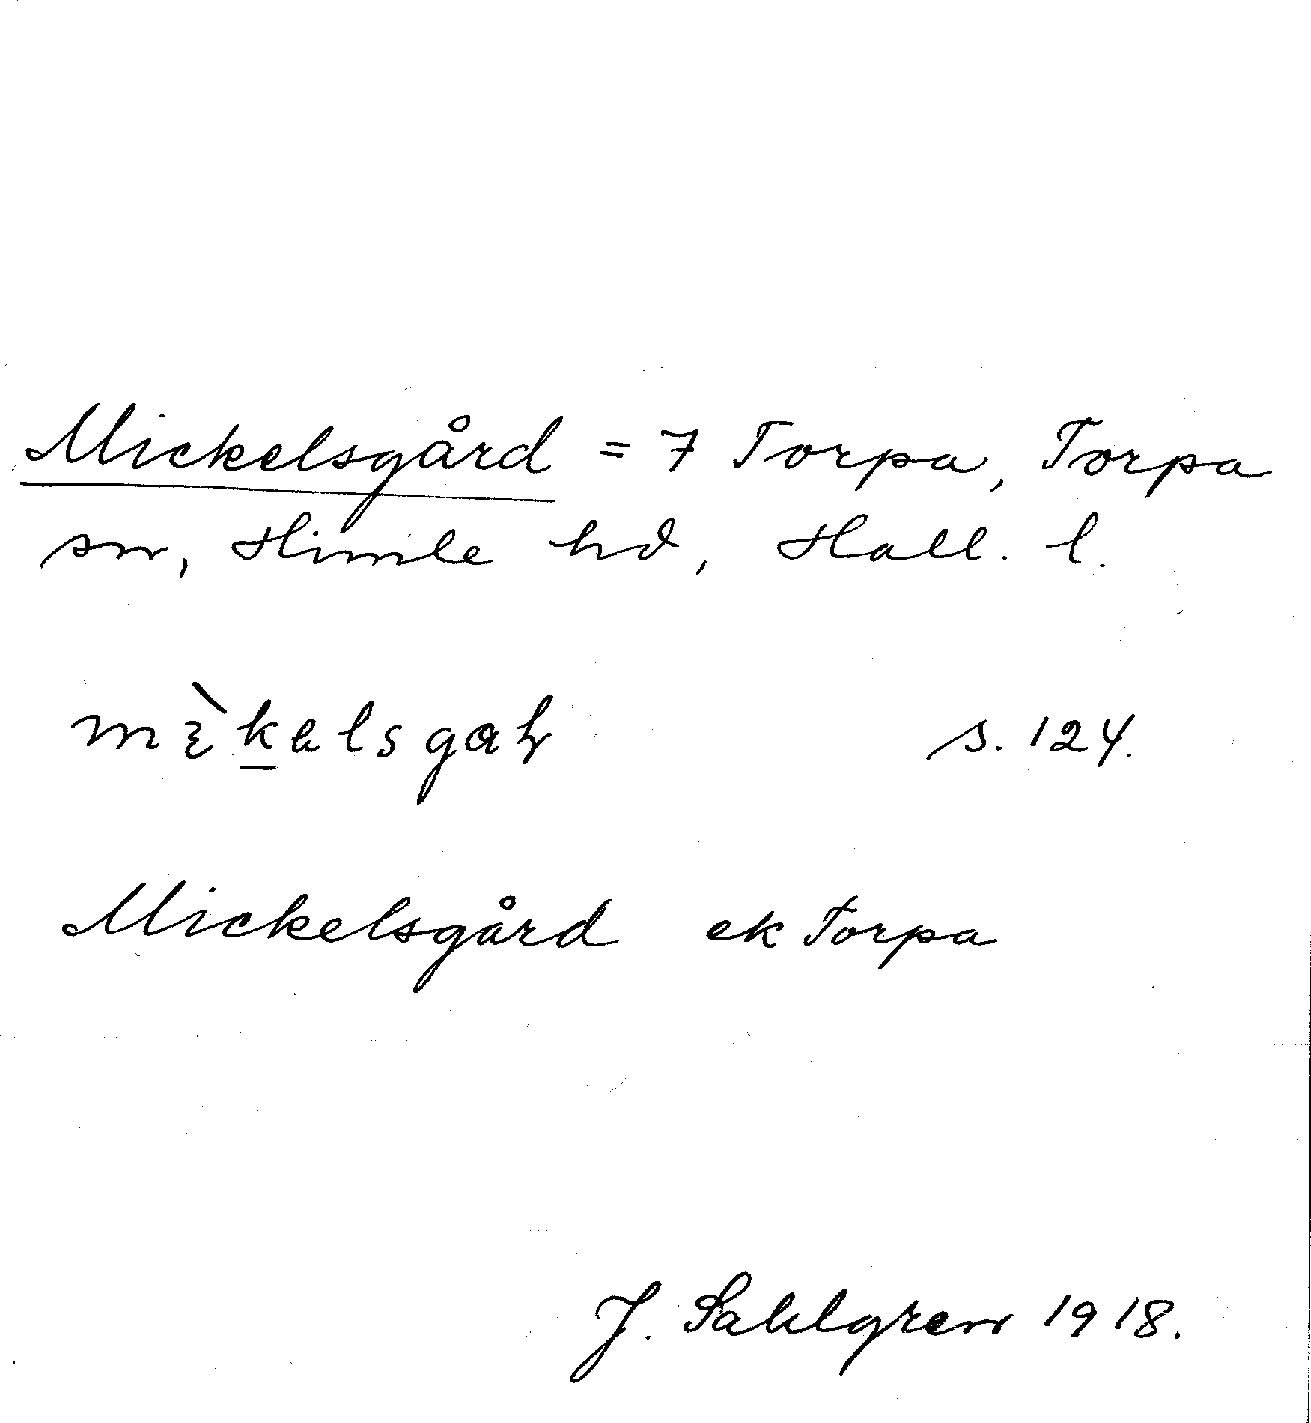 Mickelsgård = 7 Torpa, Torpa
sn, Himle hd, Hall. l.
s. 124.
Mickelsgård ek Torpa
J. Sahlgren 1918.